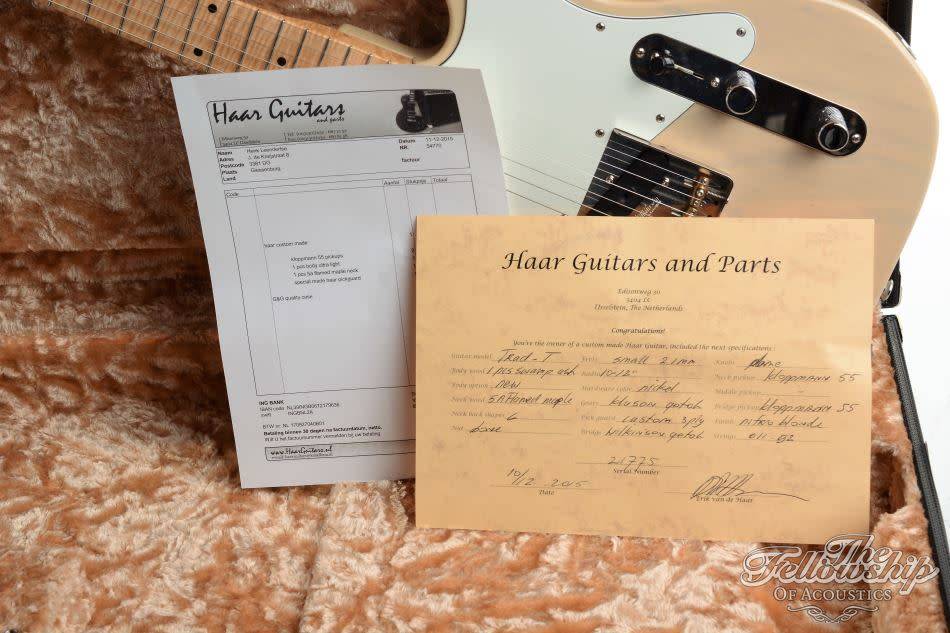 Haar Guitars
and parts
Naam Henk Leendertse Datum 11-12-2015
Adres J. de Kadtstraat 8 NR. 34770
Postcode 3361 GG
Plaats factuur
Land
Code Aantal Stukprijs Totaal
haar custom made
kloppmann 55 pickups
1 pcs body ultra light
1 pcs 5a flamed maple neck
special made haar pickguard
G&G quality case
ING BANK
IBAN code
Betaling binnen 30 dagen na factuurdatum, netto.
Wilt u het factuurnummer vermelden bij uw betaling
www.HaarGuitars.nl
Haar Guitars and Parts
Edisonweg 30
3404 LC
IJsselstein, The Netherlands
Congratulations!
You're the owner of a custom made Haar Guitar, included the next specifications:
Guitar model Trad-T Frets small 21mm Knobs dome
Body wood 1 pcs swamp ash Radius 10-12" Neck pickup kloppmann 55
Body option new Hardware color nickel Middle pickup -
Neck wood 5A flamed maple Gears kluson gotoh Bridge pickup kloppmann 55
Neck back shape C Pick guard custom 3ply Finish nitro blonde
Nut bone Bridge wilkinson gotoh Strings
21775
Serial Number
10/12 2015
Date Erik van de Haar
The
Fellowship
Of Acoustics